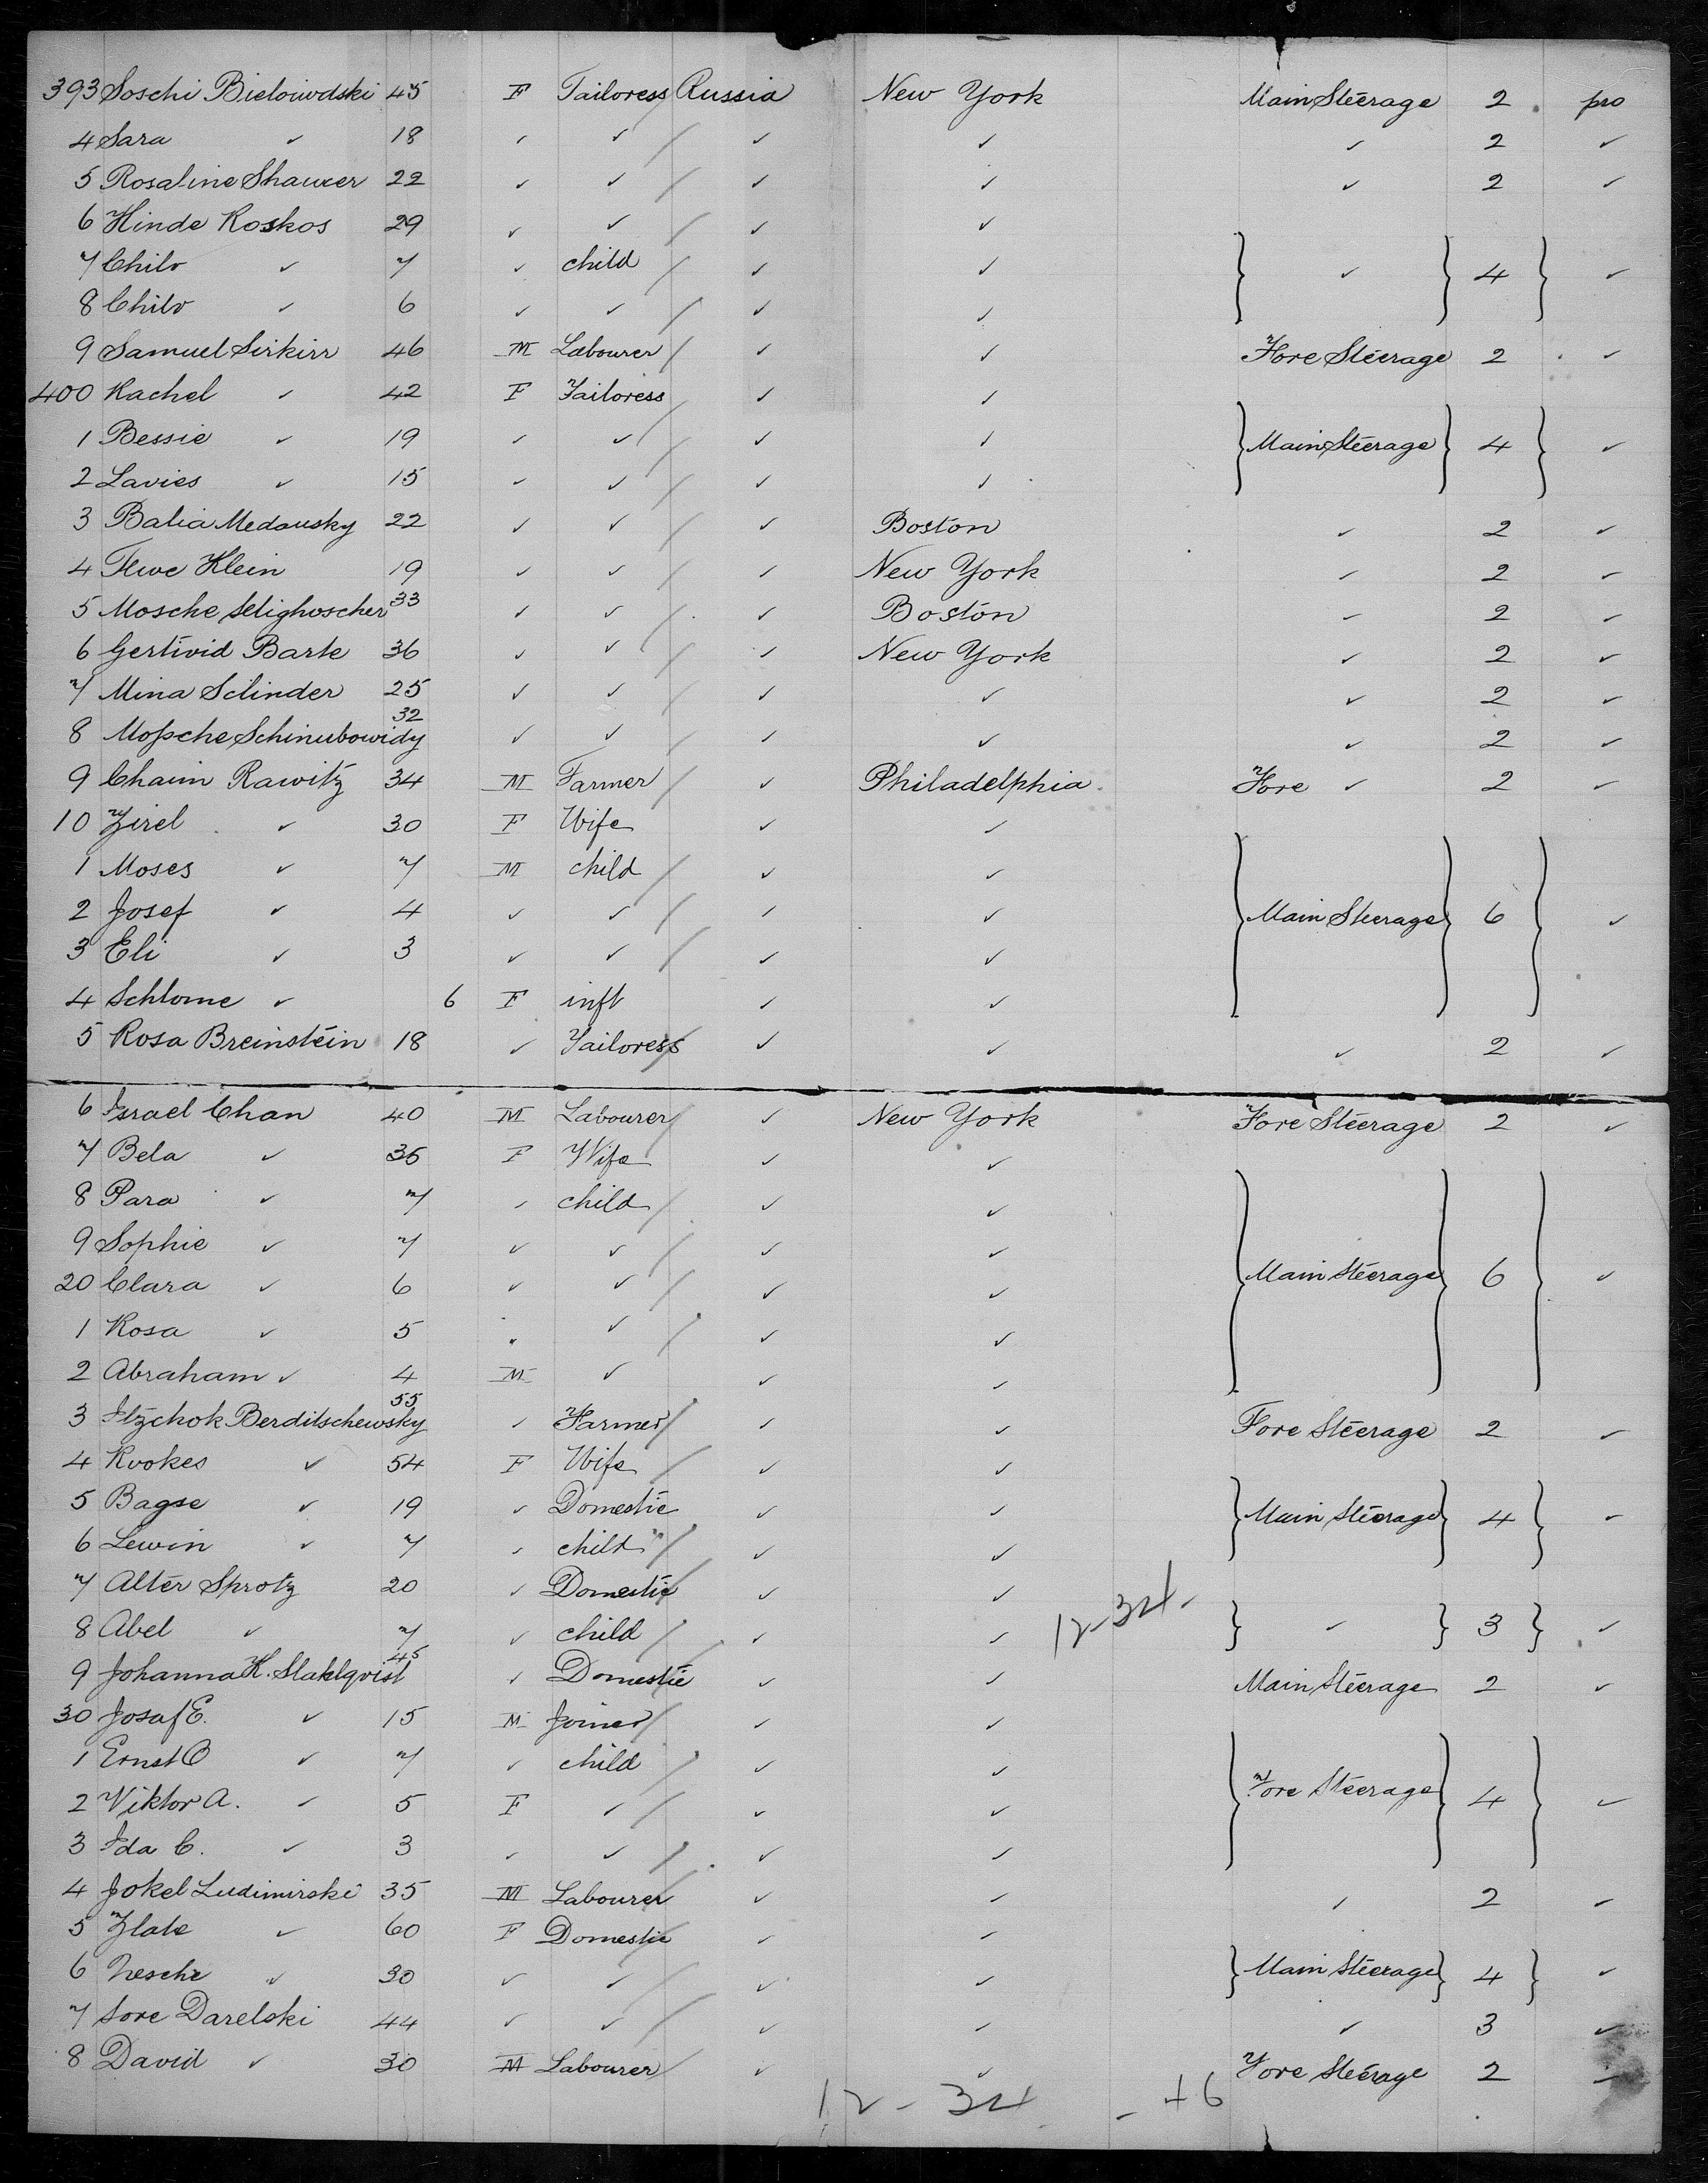 393 Soschi Bieloiwdski 45 F Tailoress Russia New York Main Steerage 2 pro
4 Sara ✓ 18 ✓ ✓ ✓ ✓ ✓ 2 ✓
5 Rosaline Shauxer 22 ✓ ✓ ✓ ✓ ✓ 2 ✓
6 Hinde Koskos 29 ✓ ✓ ✓ ✓
7 Chilo ✓ 7 ✓ child ✓ ✓ ✓ 4 ✓
8 Chilo ✓ 6 ✓ ✓ ✓ ✓
9 Samuel Sirkirr 46 M Labourer ✓ ✓ Fore Steerage 2 ✓
400 Rachel ✓ 42 F Tailoress ✓ ✓
1 Bessie ✓ 19 ✓ ✓ ✓ ✓ Main Steerage 4 ✓
2 Lavies ✓ 15 ✓ ✓ ✓ ✓
3 Balia Medausky 22 ✓ ✓ ✓ Boston ✓ 2 ✓
4 Flwe Klein 19 ✓ ✓ ✓ New York ✓ 2 ✓
5 Mosche Selighoscher 33 ✓ ✓ ✓ Boston ✓ 2 ✓
6 Gertivid Barte 36 ✓ ✓ ✓ New York ✓ 2 ✓
7 Mina Sclinder 25 ✓ ✓ ✓ ✓ ✓ 2 ✓
8 Moßche Schinubowidy 32 ✓ ✓ ✓ ✓ ✓ 2 ✓
9 Chaim Rawitz 34 M Farmer ✓ Philadelphia Fore ✓ 2 ✓
10 Zirel ✓ 30 F Wife ✓ ✓
1 Moses ✓ 7 M child ✓ ✓
2 Josef ✓ 4 ✓ ✓ ✓ ✓ Main Steerage 6 ✓
3 Eli ✓ 3 ✓ ✓ ✓ ✓
4 Schlome ✓ 6 F inft ✓ ✓
5 Rosa Breinstein 18 ✓ Tailoress ✓ ✓ ✓ 2 ✓
6 Israel Chan 40 M Labourer ✓ New York Fore Steerage 2 ✓
7 Bela ✓ 36 F Wife ✓ ✓
8 Para ✓ 7 ✓ child ✓ ✓
9 Sophie ✓ 7 ✓ ✓ ✓ ✓
20 Clara ✓ 6 ✓ ✓ ✓ ✓ Main Steerage 6 ✓
1 Rosa ✓ 5 " ✓ ✓ ✓
2 Abraham ✓ 4 M ✓ ✓ ✓
3 Itzchok Berditschewsky 55 ✓ Farmer ✓ ✓ Fore Steerage 2 ✓
4 Rvokes ✓ 54 F Wife ✓ ✓
5 Bagse ✓ 19 ✓ Domestic ✓ ✓ Main Steerage 4 ✓
6 Lewin ✓ 7 ✓ child ✓ ✓
7 Alter Sprotz 20 ✓ Domestic ✓ ✓ 12-34-
8 Abel ✓ 7 ✓ child ✓ ✓ ✓ 3 ✓
9 Johanna K. Stahlqvist 45 ✓ Domestic ✓ ✓ Main Steerage 2 ✓
30 Josaf E. ✓ 15 M Joiner ✓ ✓
1 Ernst O ✓ 7 ✓ child ✓ ✓
2 Viktor A. ✓ 5 F ✓ ✓ ✓ Fore Steerage 4 ✓
3 Ida C. ✓ 3 ✓ ✓ ✓ ✓
4 Jokel Ludimirski 35 M Labourer ✓ ✓ ✓ 2 ✓
5 Zlate ✓ 60 F Domestic ✓ ✓
6 Nesche ✓ 30 ✓ ✓ ✓ ✓ Main Steerage 4 ✓
7 Sore Darelski 44 ✓ ✓ ✓ ✓ ✓ 3 ✓
8 David ✓ 30 M Labourer ✓ ✓ Fore Steerage 2 ✓
12 - 34 - +6